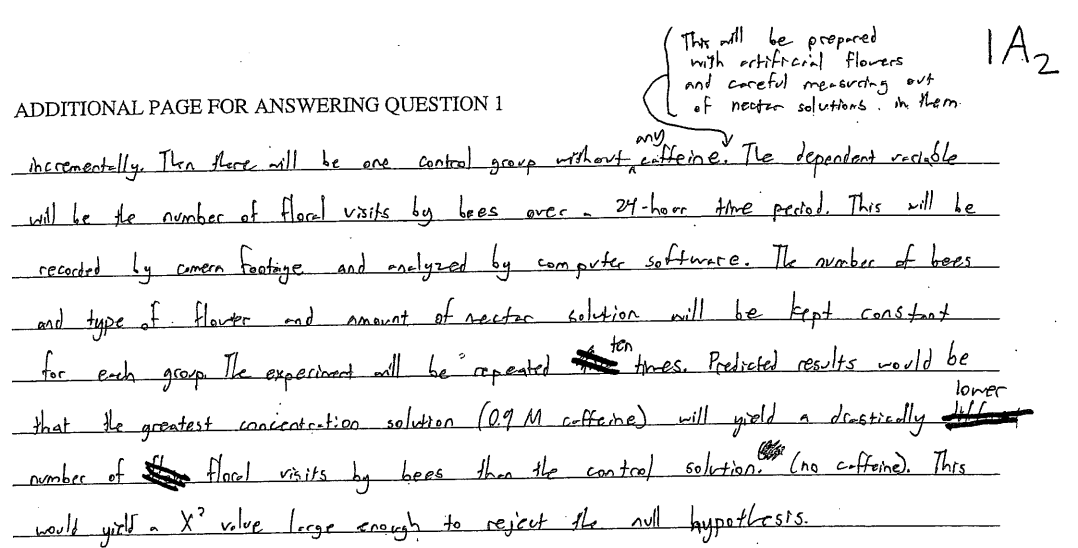 This will be prepared
with artificial flowers
and careful measuring out
of nectar solutions. in them.
1A2
ADDITIONAL PAGE FOR ANSWERING QUESTION 1
incrementally. Then there will be one control group without any caffeine. The dependent variable
will be the number of floral visits by bees over a 24-hour time period. This will be
recorded by camera footage and analyzed by computer software. The number of bees
and type of flower and amount of nectar solution will be kept constant
for each group. The experiment will be repeated ten times. Predicted results would be
that the greatest concentration solution (0.9 M caffeine) will yield a drastically lower
number of floral visits by bees than the control solution. (no caffeine). This
would yield a X² value large enough to reject the null hypothesis.